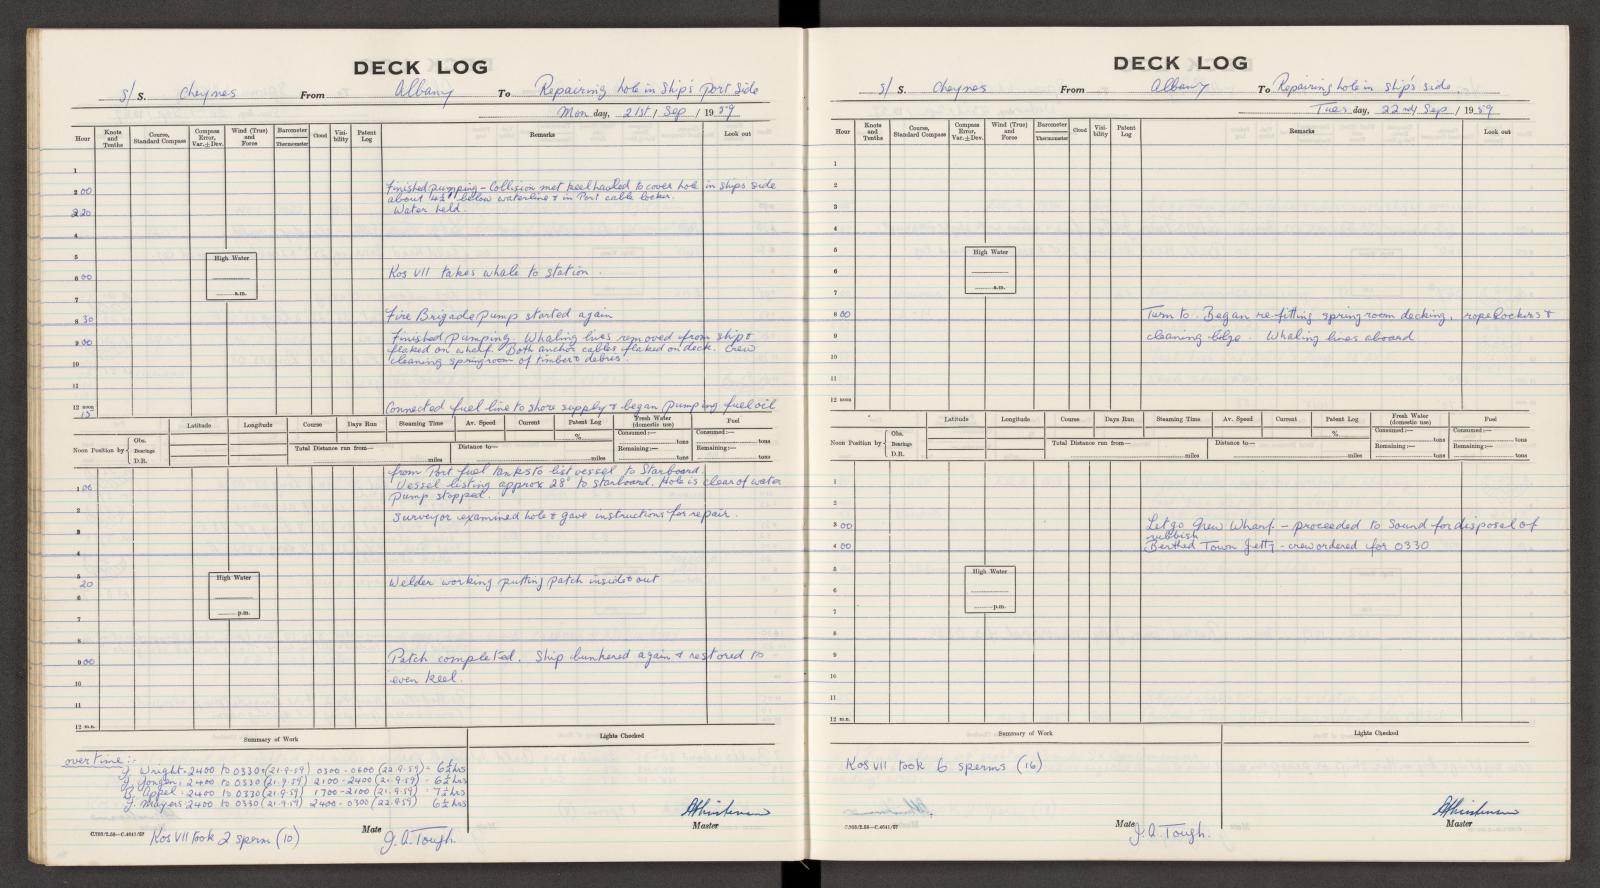 DECK LOG
S/ S. Cheynes From Albany To Repairing hole in ship's port side
Mon day, 21st / Sep / 19 59
Hour Knots and Tenths Course, Standard Compass Compass Error, Var. ± Dev. Wind (True) and Force Barometer Thermometer Cloud Visi-bility Patent Log Remarks Look out
1
2 00 Finished pumping - Collision mat keelhauled to cover hole in ships side
about 4½" below waterline & in Port cable locker.
3 20 Water held.
4
5
High Water
6 00 Kos VII takes whale to station.
a.m.
7
8 30 Fire Brigade pump started again
9 00 Finished pumping. Whaling lines removed from ship &
flaked on wharf. Both anchor cables flaked on deck. Crew
10 cleaning springroom of timber & debris.
11
12 noon Connected fuel line to shore supply & began pumping fuel oil
15
Latitude Longitude Course Days Run Steaming Time Av. Speed Current Patent Log Fresh Water (domestic use) Fuel
% Consumed:— tons Consumed:— tons
Noon Position by Obs. Bearings D.R. Total Distance run from— miles Distance to— miles Remaining:— tons Remaining:— tons
from Port fuel tanks to list vessel to Starboard.
1 00 Vessel listing approx 28° to starboard. Hole is clear of water
pump stopped.
2 Surveyor examined hole & gave instructions for repair.
3
4
5
20 High Water Welder working putting patch inside & out
6
p.m.
7
8
9 00 Patch completed. Ship bunkered again & restored to
10 even keel.
11
12 m.n.
Summary of Work Lights Checked
overtime:-
J. Wright. 2400 to 0330 (21.9.59) 0300 - 0600 (22.9.59) = 6½ hrs
2400 to 0330 (21.9.59) 2100 - 2400 (21.9.59) - 6½ hrs
B. Appel. 2400 to 0330 (21.9.59) 1700 - 2100 (21.9.59) = 7½ hrs
J. Mayers 2400 to 0330 (21.9.59) 2400 - 0300 (22.9.59) 6½ hrs
Kos VII took 2 sperm (10)
Mate J.A. Tough.
Master
DECK LOG
S/ S. Cheynes From Albany To Repairing hole in ship's side.
Tues day, 22nd Sep / 19 59
Hour Knots and Tenths Course, Standard Compass Compass Error, Var. ± Dev. Wind (True) and Force Barometer Thermometer Cloud Visi-bility Patent Log Remarks Look out
1
2
3
4
5
High Water
6
a.m.
7
8 00 Turn to. Began re-fitting springroom decking, rope lockers &
9 cleaning bilge. Whaling lines aboard
10
11
12 noon
Latitude Longitude Course Days Run Steaming Time Av. Speed Current Patent Log Fresh Water (domestic use) Fuel
% Consumed:— tons Consumed:— tons
Noon Position by Obs. Bearings D.R. Total Distance run from— miles Distance to— miles Remaining:— tons Remaining:— tons
1
2
3 00 Let go New Wharf - proceeded to Sound for disposal of
rubbish
4 00 Berthed Town Jetty - crew ordered for 0330
5
High Water
6
p.m.
7
8
9
10
11
12 m.n.
Summary of Work Lights Checked
Kos VII took 6 sperms (16)
Mate J.A. Tough.
Master